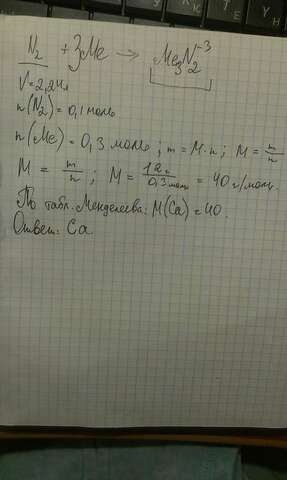 N₂ + 3Me → Me₃N₂⁻³
V = 2,24л
n(N₂) = 0,1 моль
n(Me) = 0,3 моль ; m = M·n ; M = m/n
M = m/n ; M = 12г/0,3моль = 40 г/моль.
По табл. Менделеева: M(Ca) = 40.
Ответ: Ca.